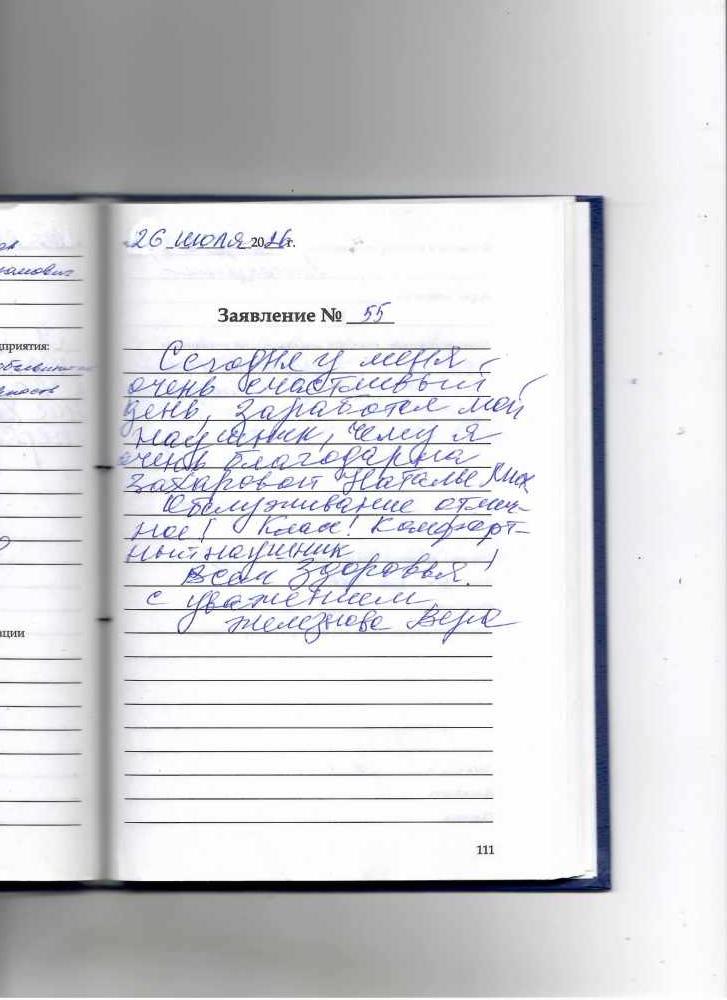 26 июля 2016 г.
Заявление № 55
Сегодня у меня
очень счастливый
день, заработал мой
наушник, чему я
очень благодарна
Захаровой Наталье Мих
Обслуживание отлич-
ное! Класс! Комфорт-
ный наушник
Всем Здоровья!
с уважением
Железнова Вера
111
приятия:
ации